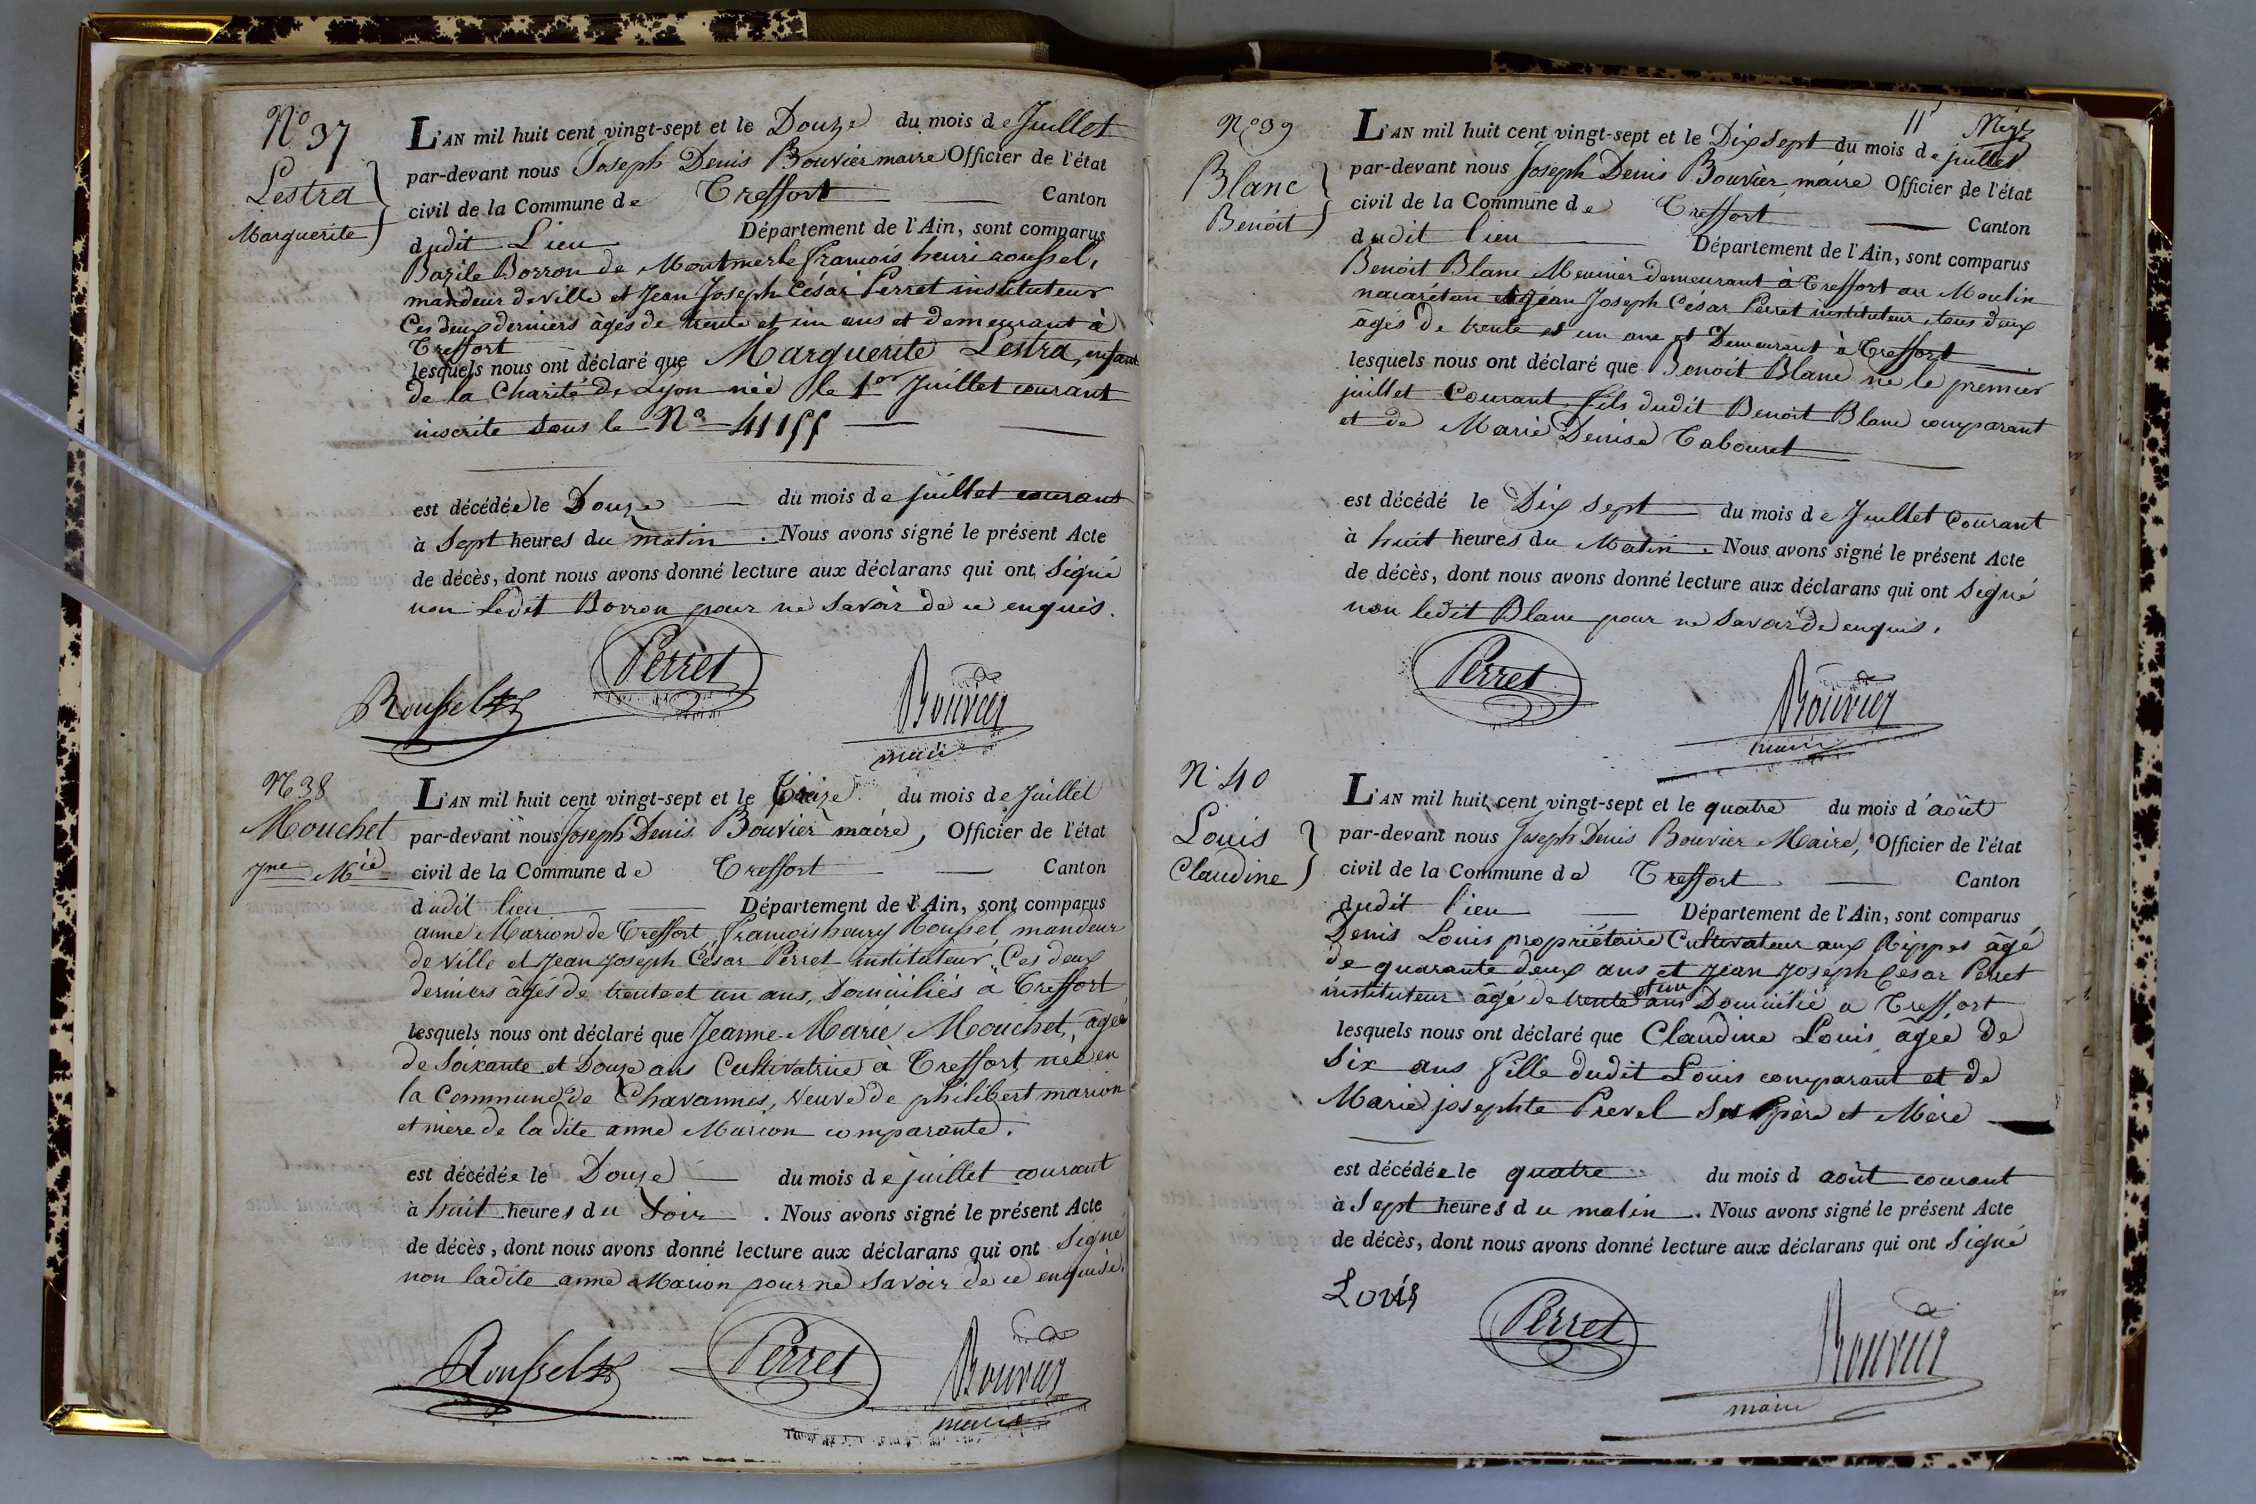 No 37
Lestra
Marguerite
L'AN mil huit cent vingt-sept et le Douze du mois de Juillet
par-devant nous Joseph Denis Bouvier maire Officier de l'état
civil de la Commune de Treffort Canton
dudit Lieu Département de l'Ain, sont comparus
Bazile Borron de Montmerle françois henri roussel,
mandeur de ville et Jean Joseph César Perret instituteur
Ces deux derniers âgés de trente et un ans et demeurant à
Treffort
lesquels nous ont déclaré que Marguerite Lestra, enfant
de la Charité de Lyon née le 1er Juillet courant
inscrite sous le No 41155
est décédée le Douze du mois de juillet courant
à Sept heures du matin. Nous avons signé le présent Acte
de décès, dont nous avons donné lecture aux déclarans qui ont Signé
non Ledit Borron pour ne Savoir de ce enquis.
Perret
Roussel
Bouvier
maire
No 38
Mouchet
jne Mie
L'AN mil huit cent vingt-sept et le Treize du mois de Juillet
par-devant nous Joseph Denis Bouvier maire, Officier de l'état
civil de la Commune de Treffort Canton
dudit lieu Département de l'Ain, sont comparus
anne Marion de Treffort, françois henry Roussel mandeur
de ville et Jean Joseph César Perret instituteur, Ces deux
derniers âgés de trente et un ans, Domiciliés à Treffort
lesquels nous ont déclaré que Jeanne Marie Mouchet, âgée
de Soixante et Douze ans Cultivatrice à Treffort née en
la Commune de Chavannes, Veuve de philibert marion
et mère de la dite anne Marion comparante.
est décédée le Douze du mois de juillet courant
à huit heures du Soir. Nous avons signé le présent Acte
de décès, dont nous avons donné lecture aux déclarans qui ont Signé
non ladite anne Marion pour ne Savoir de ce enquise.
Roussel
Perret
Bouvier
maire
No 39
Blanc
Benoit
L'AN mil huit cent vingt-sept et le Dix sept du mois de juillet
par-devant nous Joseph Denis Bouvier, maire Officier de l'état
civil de la Commune de Treffort Canton
dudit lieu Département de l'Ain, sont comparus
Benoit Blanc Meunier demeurant à Treffort au Moulin
et jean Joseph César Perret instituteur, tous deux
âgés de trente et un ans et Demeurant à Treffort
lesquels nous ont déclaré que Benoit Blanc né le premier
juillet Courant, fils dudit Benoit Blanc comparant
et de Marie Denise Tabouret
est décédé le Dix sept du mois de Juillet Courant
à huit heures du Matin. Nous avons signé le présent Acte
de décès, dont nous avons donné lecture aux déclarans qui ont Signé
non ledit Blanc pour ne Savoir de enquis.
Perret
Bouvier
maire
N. 40
Louis
Claudine
L'AN mil huit cent vingt-sept et le quatre du mois d'août
par-devant nous Joseph Denis Bouvier Maire, Officier de l'état
civil de la Commune de Treffort Canton
dudit lieu Département de l'Ain, sont comparus
Denis Louis propriétaire Cultivateur aux Rippes âgé
de quarante deux ans et Jean Joseph César Perret
instituteur âgé de trente et un ans Domicilié à Treffort
lesquels nous ont déclaré que Claudine Louis âgée de
Six ans fille dudit Louis comparant et de
Marie josephte Prevel Ses père et Mère
est décédée le quatre du mois d août courant
à Sept heures du matin. Nous avons signé le présent Acte
de décès, dont nous avons donné lecture aux déclarans qui ont Signé
Louis
Perret
Bouvier
maire